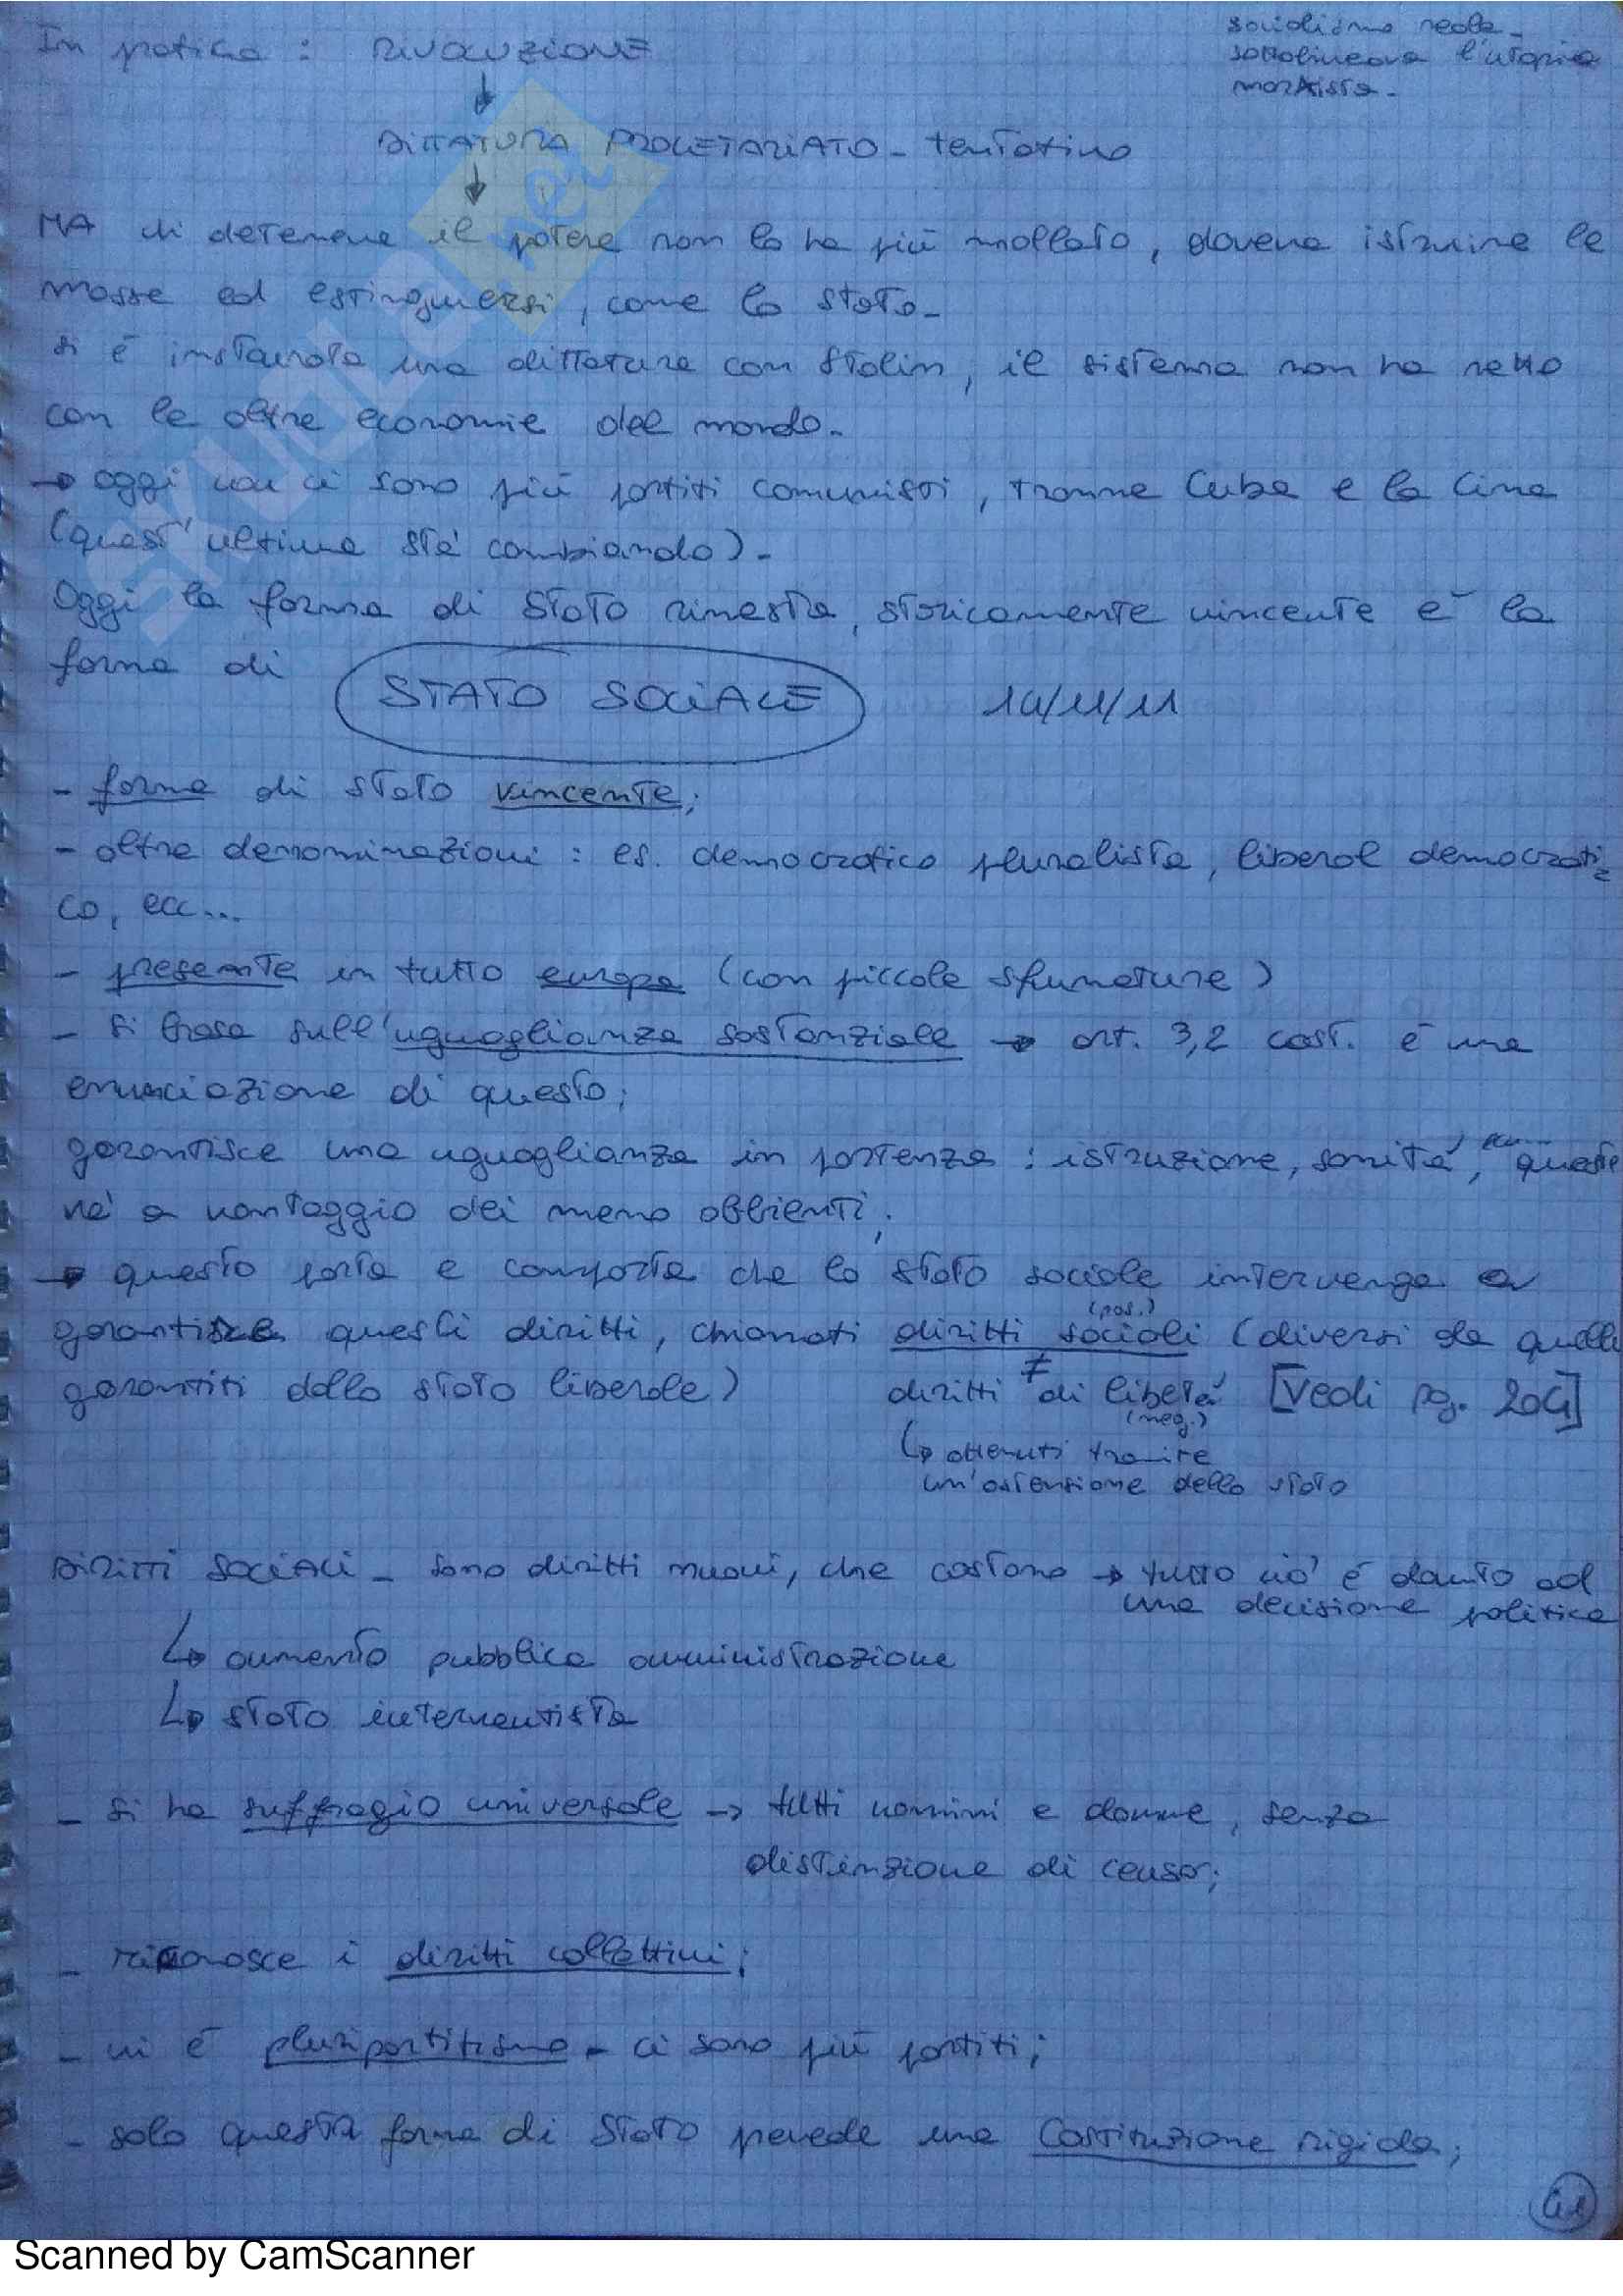 socialismo reale -
sottolineava l'utopia
marxista -
In pratica : RIVOLUZIONE
↓
DITTATURA PROLETARIATO - tentativo
↓
MA chi deteneva il potere non lo ha più mollato, doveva istruire le
masse ed estinguersi, come lo stato -
si è instaurata una dittatura con Stalin, il sistema non ha retto
con le altre economie del mondo -
→ oggi non ci sono più partiti comunisti, tranne Cuba e la Cina
(quest'ultima sta' cambiando) -
Oggi la forma di Stato rimasta, storicamente vincente è la
forma di STATO SOCIALE 14/11/11
- forma di stato vincente;
- altre denominazioni : es. democratico pluralista, liberal democrati
co, ecc...
- presente in tutto europa (con piccole sfumature)
- si basa sull'uguaglianza sostanziale → art. 3,2 cost. è una
enunciazione di questo;
garantisce una uguaglianza in partenza : istruzione, sanità, ecc... queste
va' a vantaggio dei meno abbienti;
→ questo porta e comporta che lo stato sociale intervenga a
garantire questi diritti, chiamati diritti sociali (pos.) (diversi da quelli
garantiti dallo stato liberale) ≠ diritti di libertà (neg.) [Vedi pg. 204]
↳ ottenuti tramite
un'astensione dello stato
DIRITTI SOCIALI - sono diritti nuovi, che costano → tutto ciò è dovuto ad
una decisione politica
↳ aumento pubblica amministrazione
↳ stato interventista
- si ha suffragio universale → tutti uomini e donne, senza
distinzione di censo;
- riconosce i diritti collettivi;
- vi è pluripartitismo - ci sono più partiti;
- solo questa forma di Stato prevede una Costituzione rigida;
41
SKUOLA.net
Scanned by CamScanner